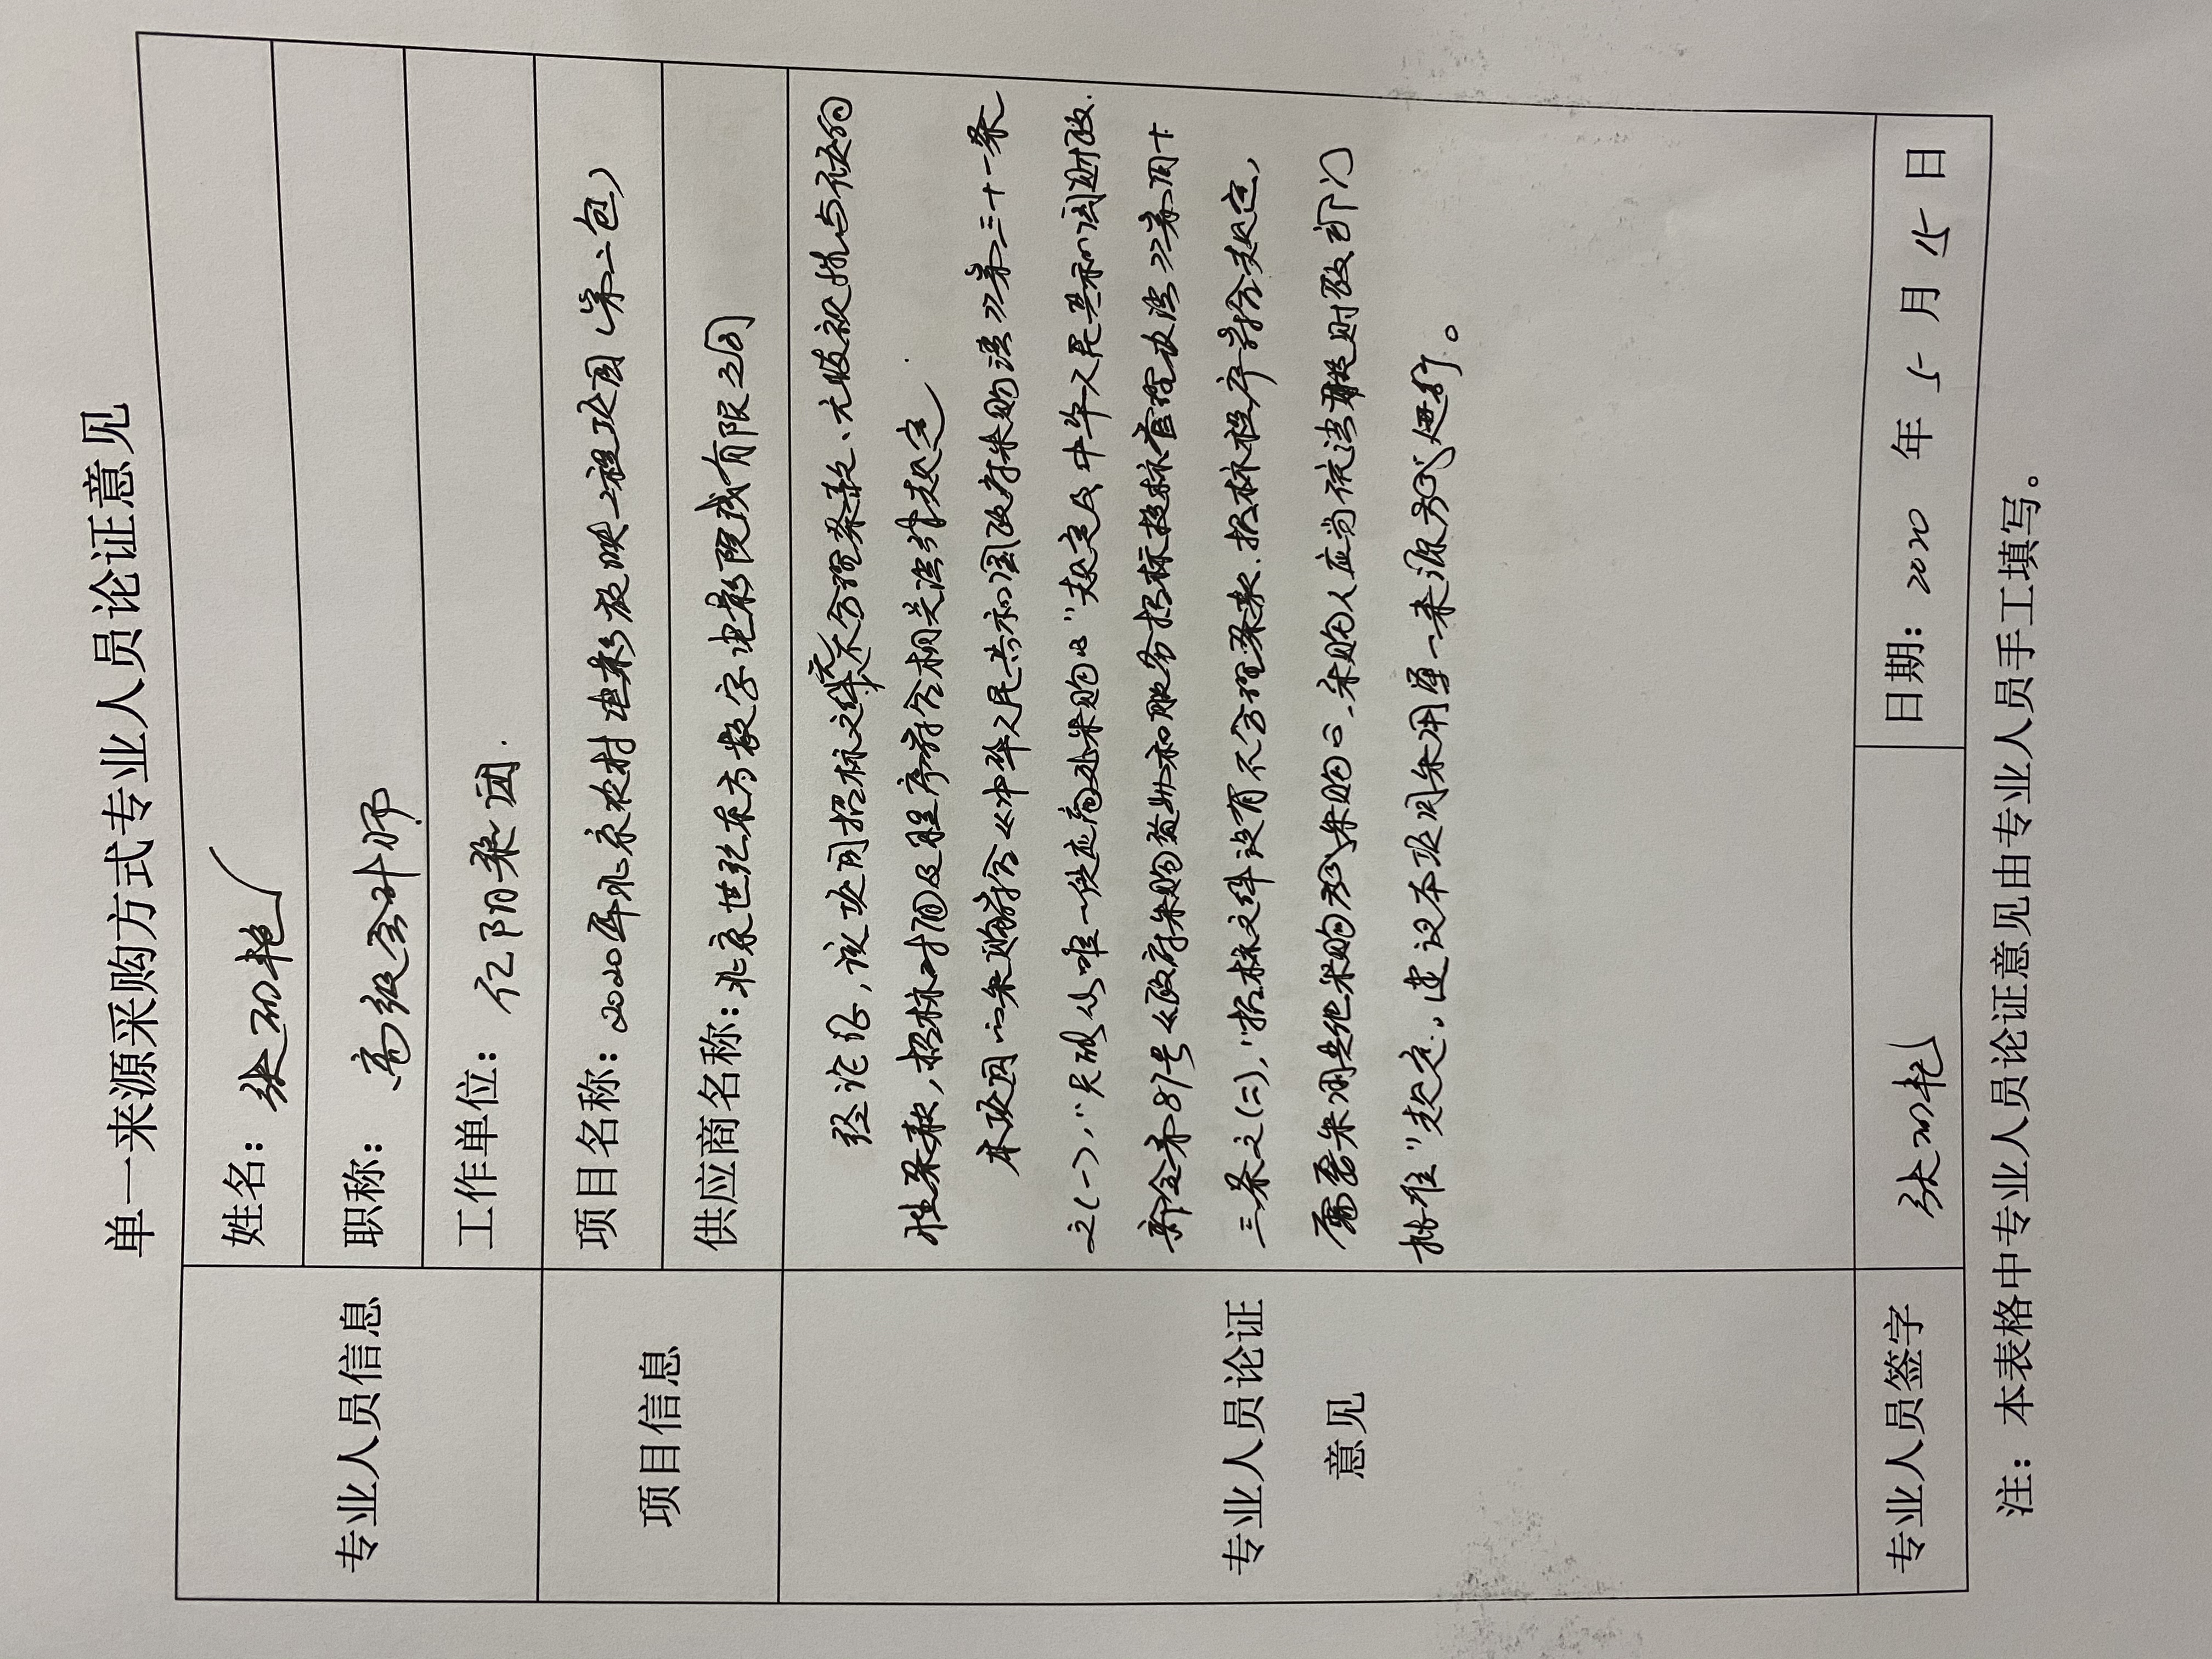 单一来源采购方式专业人员论证意见
专业人员信息
姓名：
职称：高级会计师
工作单位：亿阳集团.
项目信息
项目名称：2020年北京农村电影放映工程项目（第二包）
供应商名称：北京世纪东方数字电影院线有限公司
专业人员论证
意见
经论证，该项目招标文件无不合理条款、无歧视性与倾向
性条款，招标时间及程序符合相关法律规定
本项目的采购符合《中华人民共和国政府采购法》第三十一条
之（一），“只能从唯一供应商处采购的”规定及中华人民共和国财政
部令第87号《政府采购货物和服务招标投标管理办法》第四十
三条之（二），“招标文件没有不合理条款、招标程序符合规定，
需要采用其他采购方式采购的，采购人应当依法报财政部门
批准”规定，建议本项目采用单一来源方式进行。
专业人员签字
日期：2020 年 5 月 15 日
注：本表格中专业人员论证意见由专业人员手工填写。